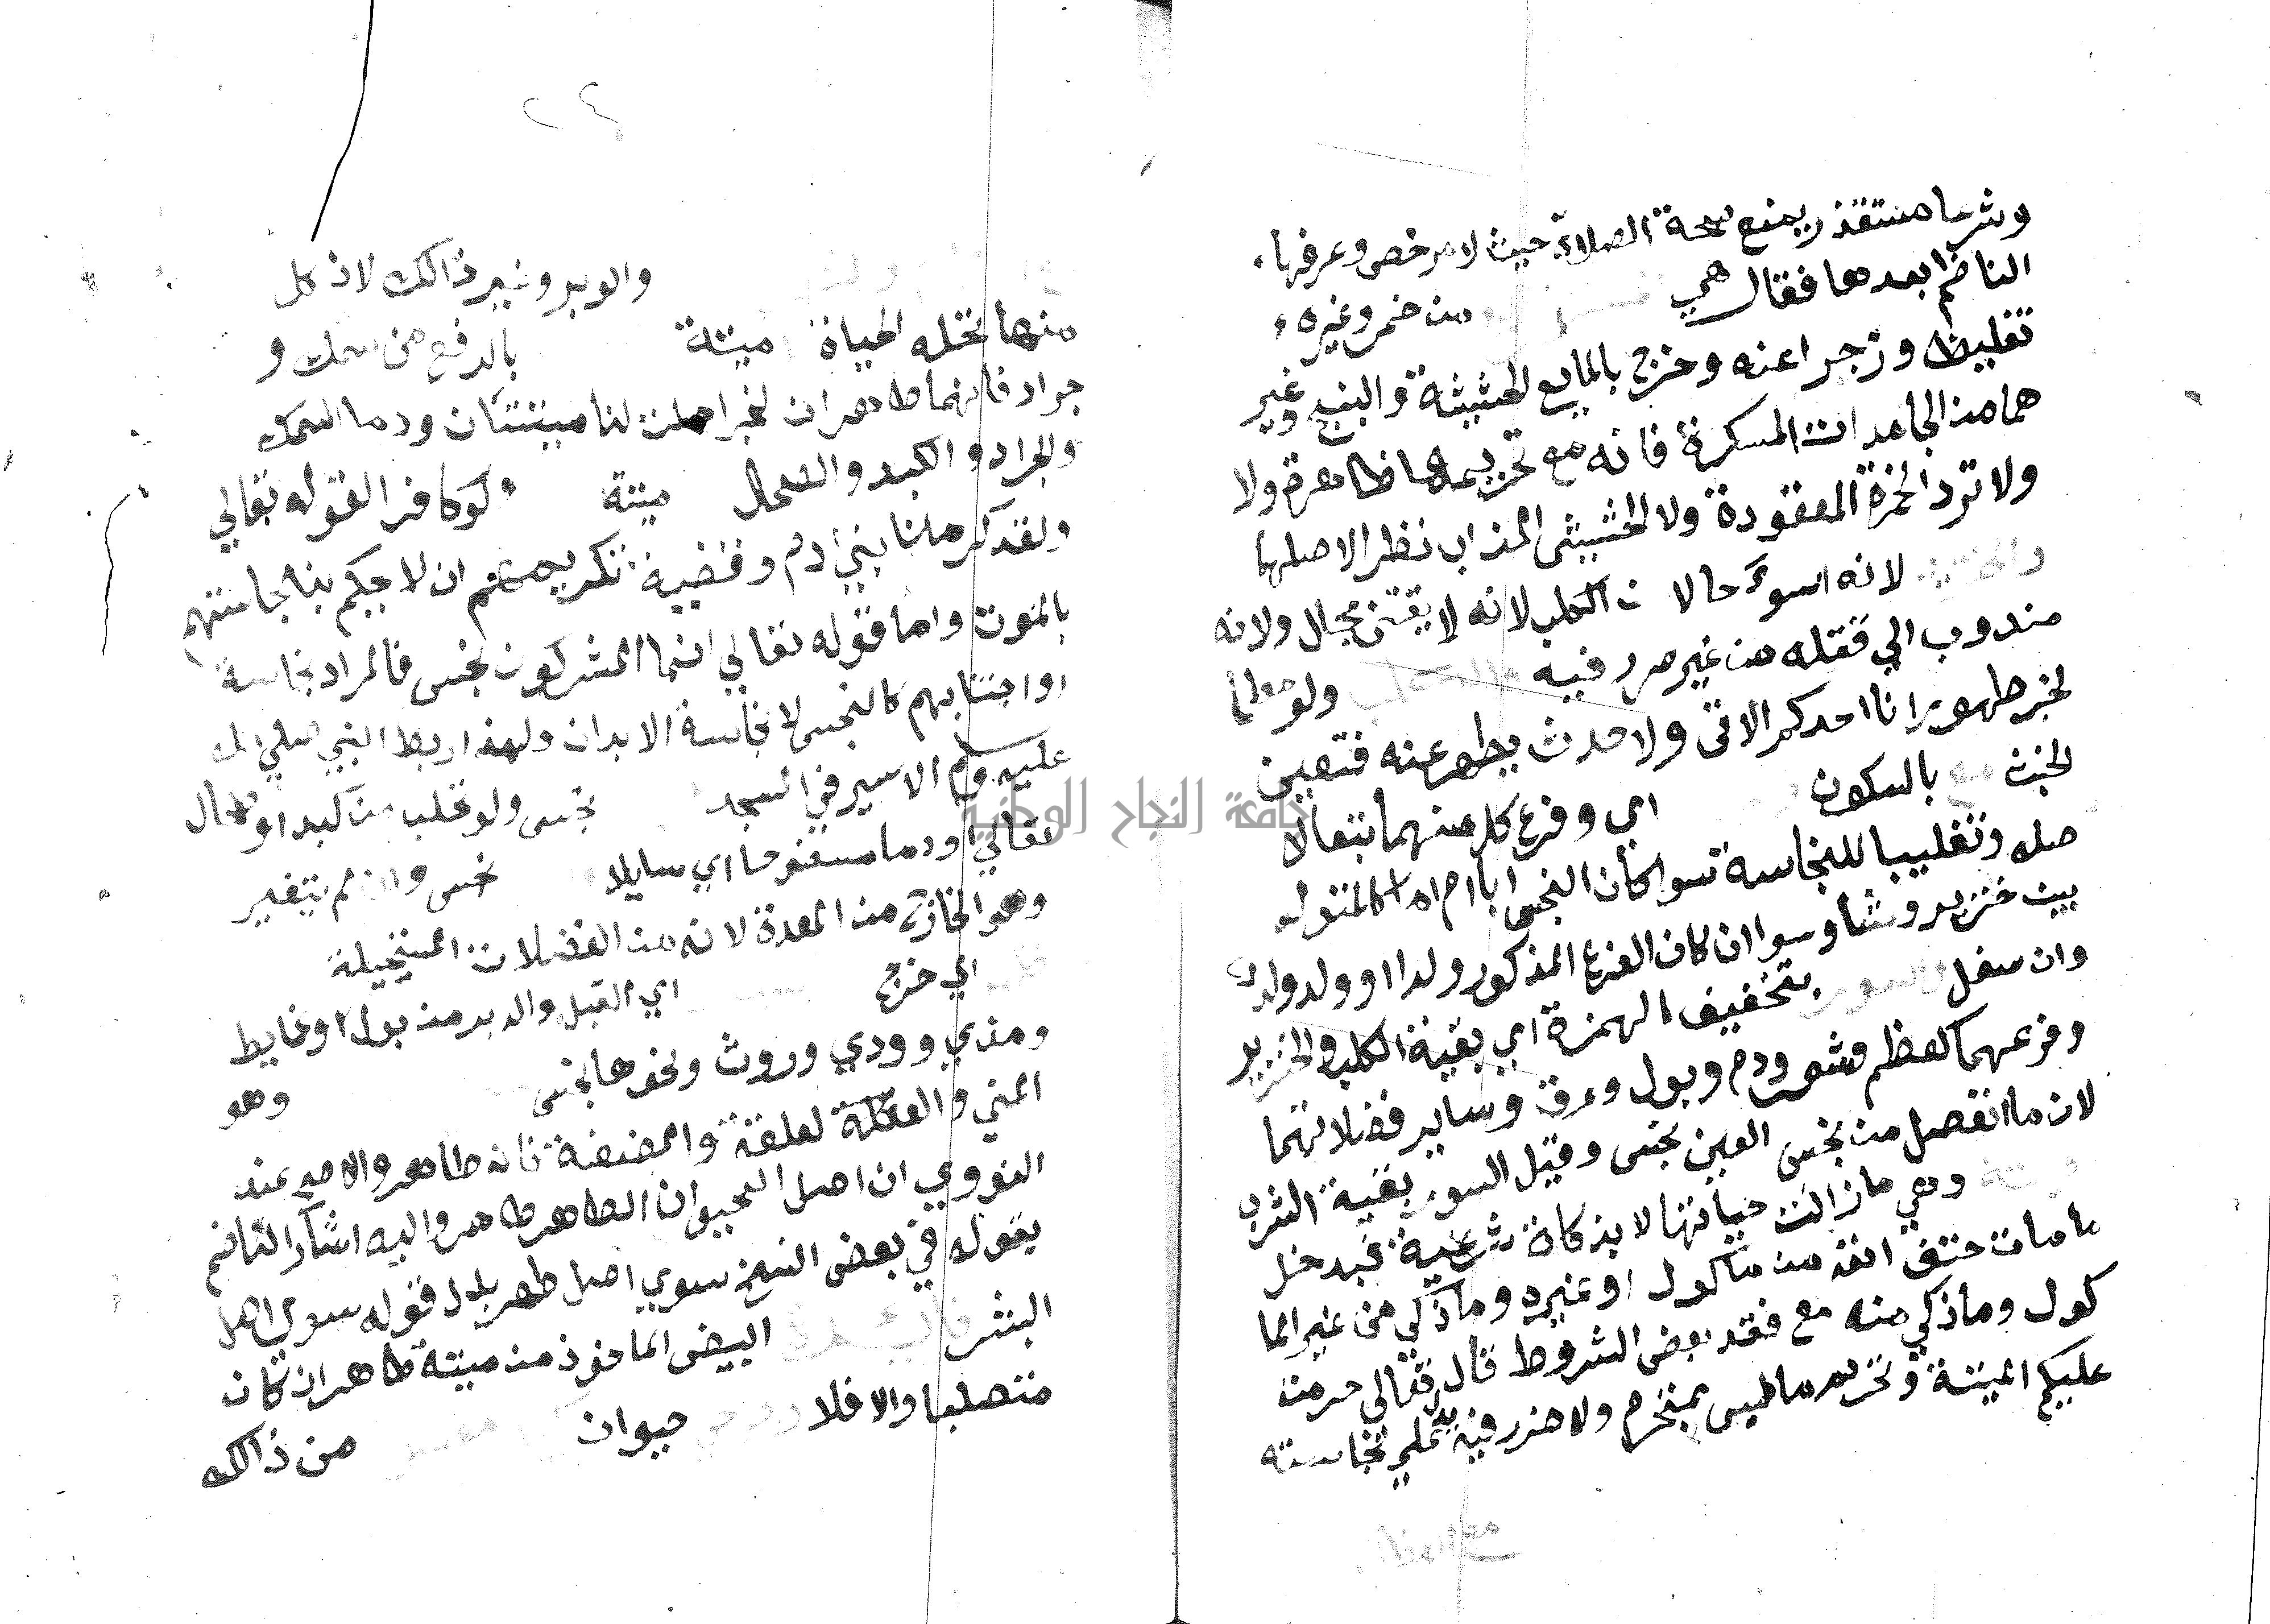 وشرعا مستقذر يمنع صحة الصلاة حيث لا مرخص وعرفها
الناظم بعدها فقال هي من خمر وغيره
تغليظا وزجرا عنه وخرج بالمايع الحشيشة والبنج وغير
هما من الجامدات المسكرة فانه مع تحريمها طاهرة ولا
ولا ترد الخمرة المعقودة ولا الحشيش المذاب نظرا لاصلها
لانه اسوء حالا من الكلب لانه لا يقتنى بحال ولانه
مندوب الي قتله من غير ضرر فيه ولو معلما
لخبر طهور انا احدكم الاتي ولا حدث يطهر عنه فتعين
الخبث بالسكون اي وفرع كل منهما تبعا لا
صله وتغليبا للنجاسة سوا كان النجس ابا ام اما كالمتولد
بين خنزير وشا وسوا ان كان الفرع المذكور ولدا او ولد ولد
وان سفل والسور بتخفيف الهمزة اي بقية الكلب والخنزير
وفرعهما كعظم وشعر ودم وبول وعرق وساير فضلاتهما
لان ما انفصل من نجس العين نجس وقيل السور بقية الشرب
وهي ما زالت حياتها لا بذكاة شرعية فيدخل
ما مات حتف انفه من ماكول او غيره وما ذكي من غير الما
كول وما ذكي منه مع فقد بعض الشروط قال تعالي حرمت
عليكم الميتة وتحريم ما ليس بمحترم ولا ضرر فيه يدل علي نجاسته
٢٤
والوبر وغير ذالك لان كل
منها تحله الحياة ميتة بالرفع من سمك و
جراد فانهما طاهران لخبر احلت لنا ميتتان ودما السمك
والجراد والكبد والطحال ميتة ولو كافرا لقوله تعالي
ولقد كرمنا بني ادم وقضية تكريمهم ان لا يحكم بنجاستهم
بالموت واما قوله تعالي انما المشركون نجس فالمراد نجاسة
او اجتنابهم كالنجس لا نجاسة الابدان ولهذا ربط النبي صلي الله
عليه وسلم الاسير في المسجد نجس ولو تحلب من كبد او طحال
تعالي او دما مسفوحا اي سايلا نجس وان لم يتغير
وهو الخارج من المعدة لانه من الفضلات المستحيلة
اي خرج اي القبل والدبر من بول او غايط
ومذي وودي وروث ونحوها نجس وهو
المني والعلقة والمضغة فانه طاهر والاصح عند
النووي ان اصل الحيوان الطاهر طاهر واليه اشار الناظم
بقوله في بعض النسخ سوي اصل طهر بدل قوله سوي اصل
البشر البيض الماخوذ من ميتة طاهر ان كان
متصلبا والا فلا حيوان من ذالك
جامعة النجاح الوطنية